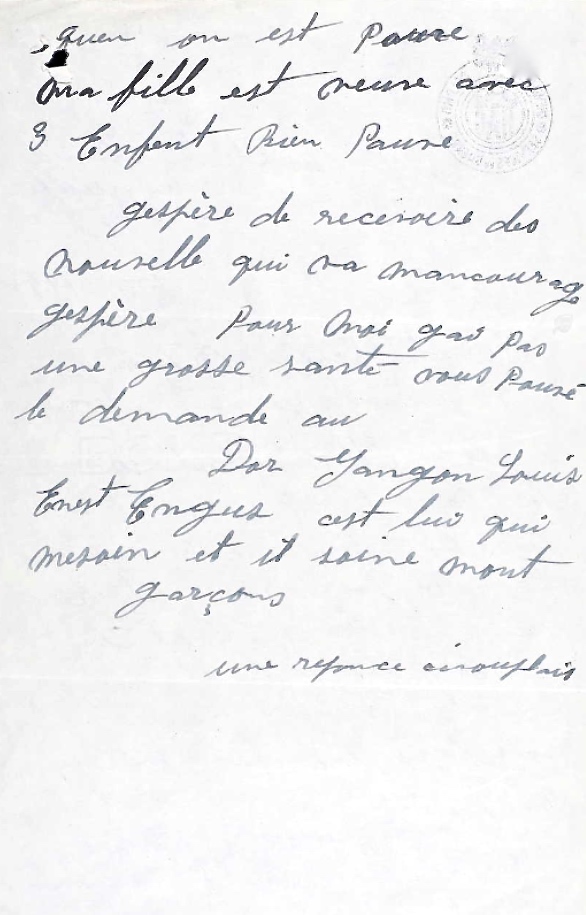 quen on est Pauve
ma fille est veuve avec
3 Enfent Bien Pauve
gespère de recevoire des
nouvelle qui va mancourage
gespère Pour Moi gai pas
une grosse santé vous Pouvé
le demande au
Dor Gangon Louis
Enest Engus cest lui qui
mesoin et il soine mont
garçons
une reponce